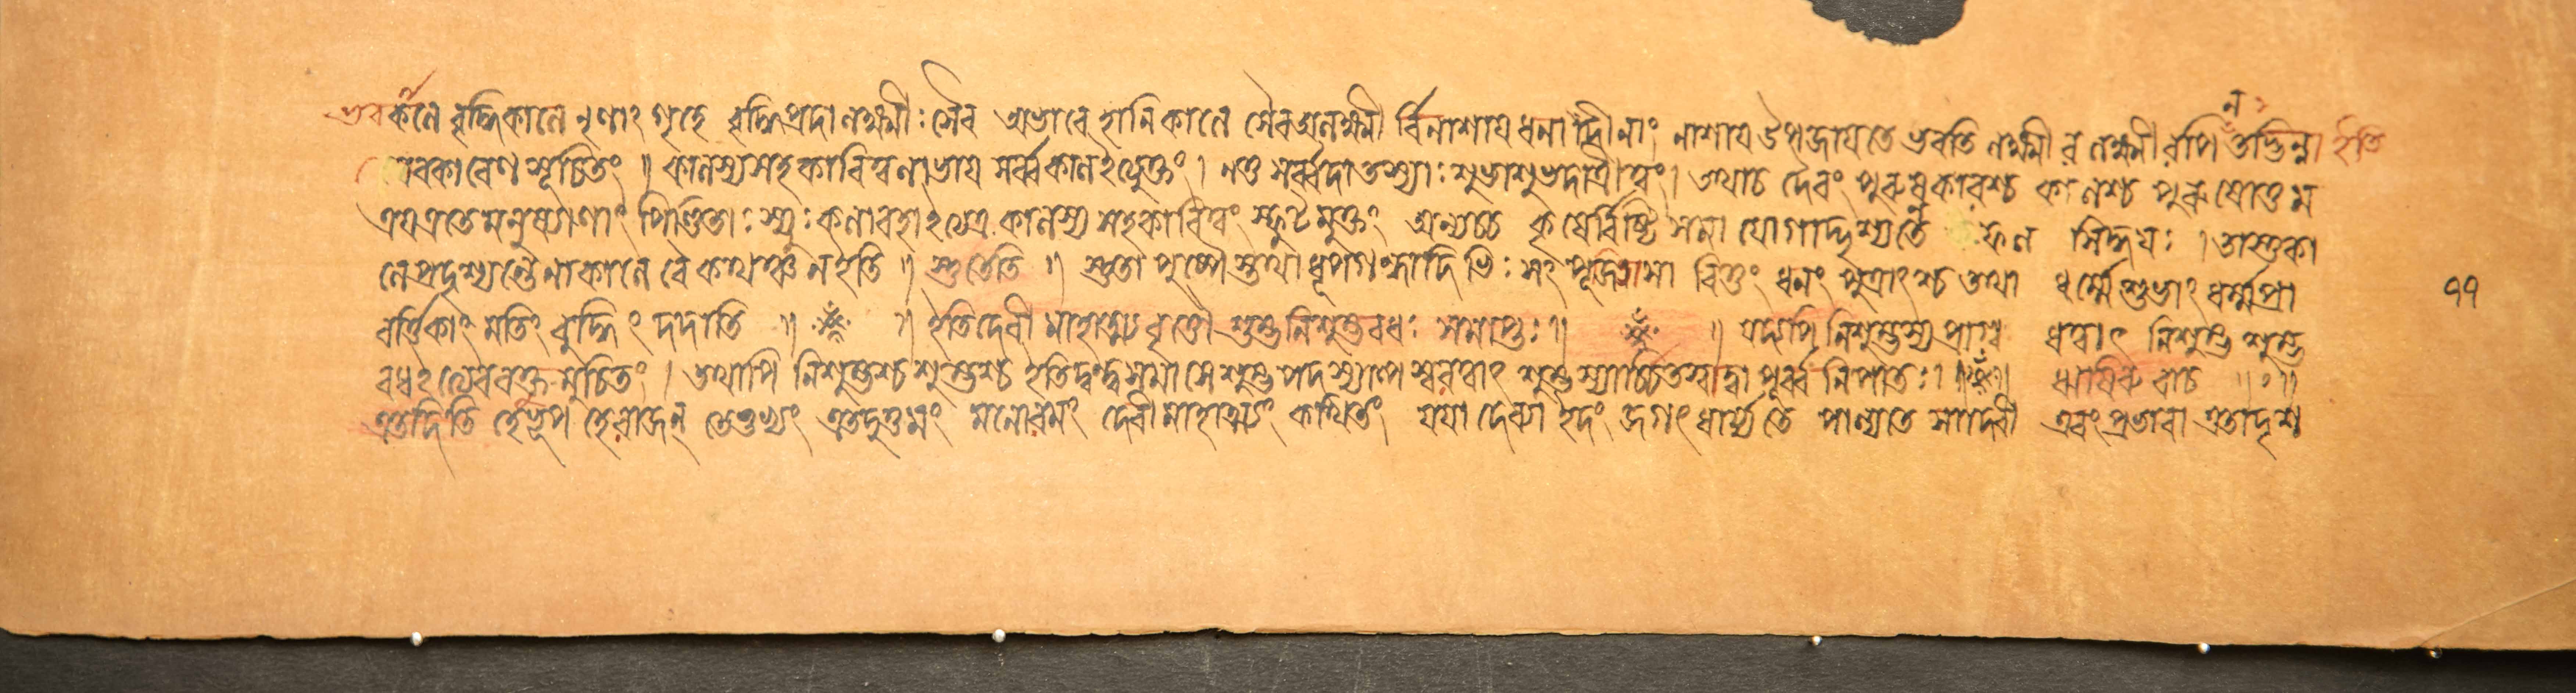 ভবকালে বৃদ্ধিকালে নৃণাং গৃহে বৃদ্ধিপ্রদা লক্ষ্মীঃ সৈব অভাবে হানিকালে সৈবঅলক্ষ্মী র্বিনাশায ধনাদীনাং নাশায উপজাযতে ভবতি লক্ষ্মীর লক্ষ্মীরপি ন তদ্ভিন্না ইতি
এবকারেণ সূচিতং ॥ কালস্য সহকারিত্ব লাভায সর্ব্বকালঽত্যুক্তং । নতু সর্ব্বদা তস্যাঃ শুভাশুভদাত্রীত্বং । তথাচ দৈবং পুরুষকারশ্চ কালশ্চ পুরুষোত্তম
ত্রযএতে মনুষ্যাণাং পিণ্ডিতাঃ স্যুঃ ফলাবহাঽত্যত্র কালস্য সহকারিত্বং স্ফুটমুক্তং অন্যচ্চ কৃষের্বিষ্টি সমা যোগাদ্দৃশ্যন্তে ফল সিদ্ধযঃ । তাস্তুকা
লে প্রদৃশ্যন্তে নাকালে বে কথঞ্চন ইতি ॥ স্তুতেতি ॥ স্তুতা পুষ্পৈস্তথা ধূপগন্ধাদিভিঃ সংপূজিতাসা বিত্তং ধনং পুত্রাংশ্চ তথা ধর্ম্মে শুভাং ধর্ম্মপ্রা
বর্ত্তিকাং মতিং বুদ্ধিং দদাতি ॥ ॥ ইতি দেবীমাহাত্ম্য বৃত্তৌ শুম্ভনিশুম্ভবধঃ সমাপ্তঃ ॥ ॥ যদ্যপি নিশুম্ভস্য প্রাগ্ব ধত্বাৎ নিশুম্ভ শুম্ভ
বধঽত্যেববক্তুমুচিতং । তথাপি নিশুম্ভশ্চ শুম্ভশ্চ ইতি দ্বন্দ্বসমাসে শুম্ভ পদস্যাল্প স্বরত্বাৎ শুম্ভস্যার্চ্চিতত্বাদ্বা পূর্ব্ব নিপাতঃ । ॥ ঋষিরুবাচ ॥ঃ॥
এতদিতি হেভূপ হেরাজন্ তেতুভ্যং এতদুত্তমং মনোরমং দেবীমাহাত্ম্যং কথিতং যযা দেব্যা ইদং জগৎ ধার্য্যতে পাল্যতে সাদেবী এবংপ্রভাবা এতাদৃশ
৭৭